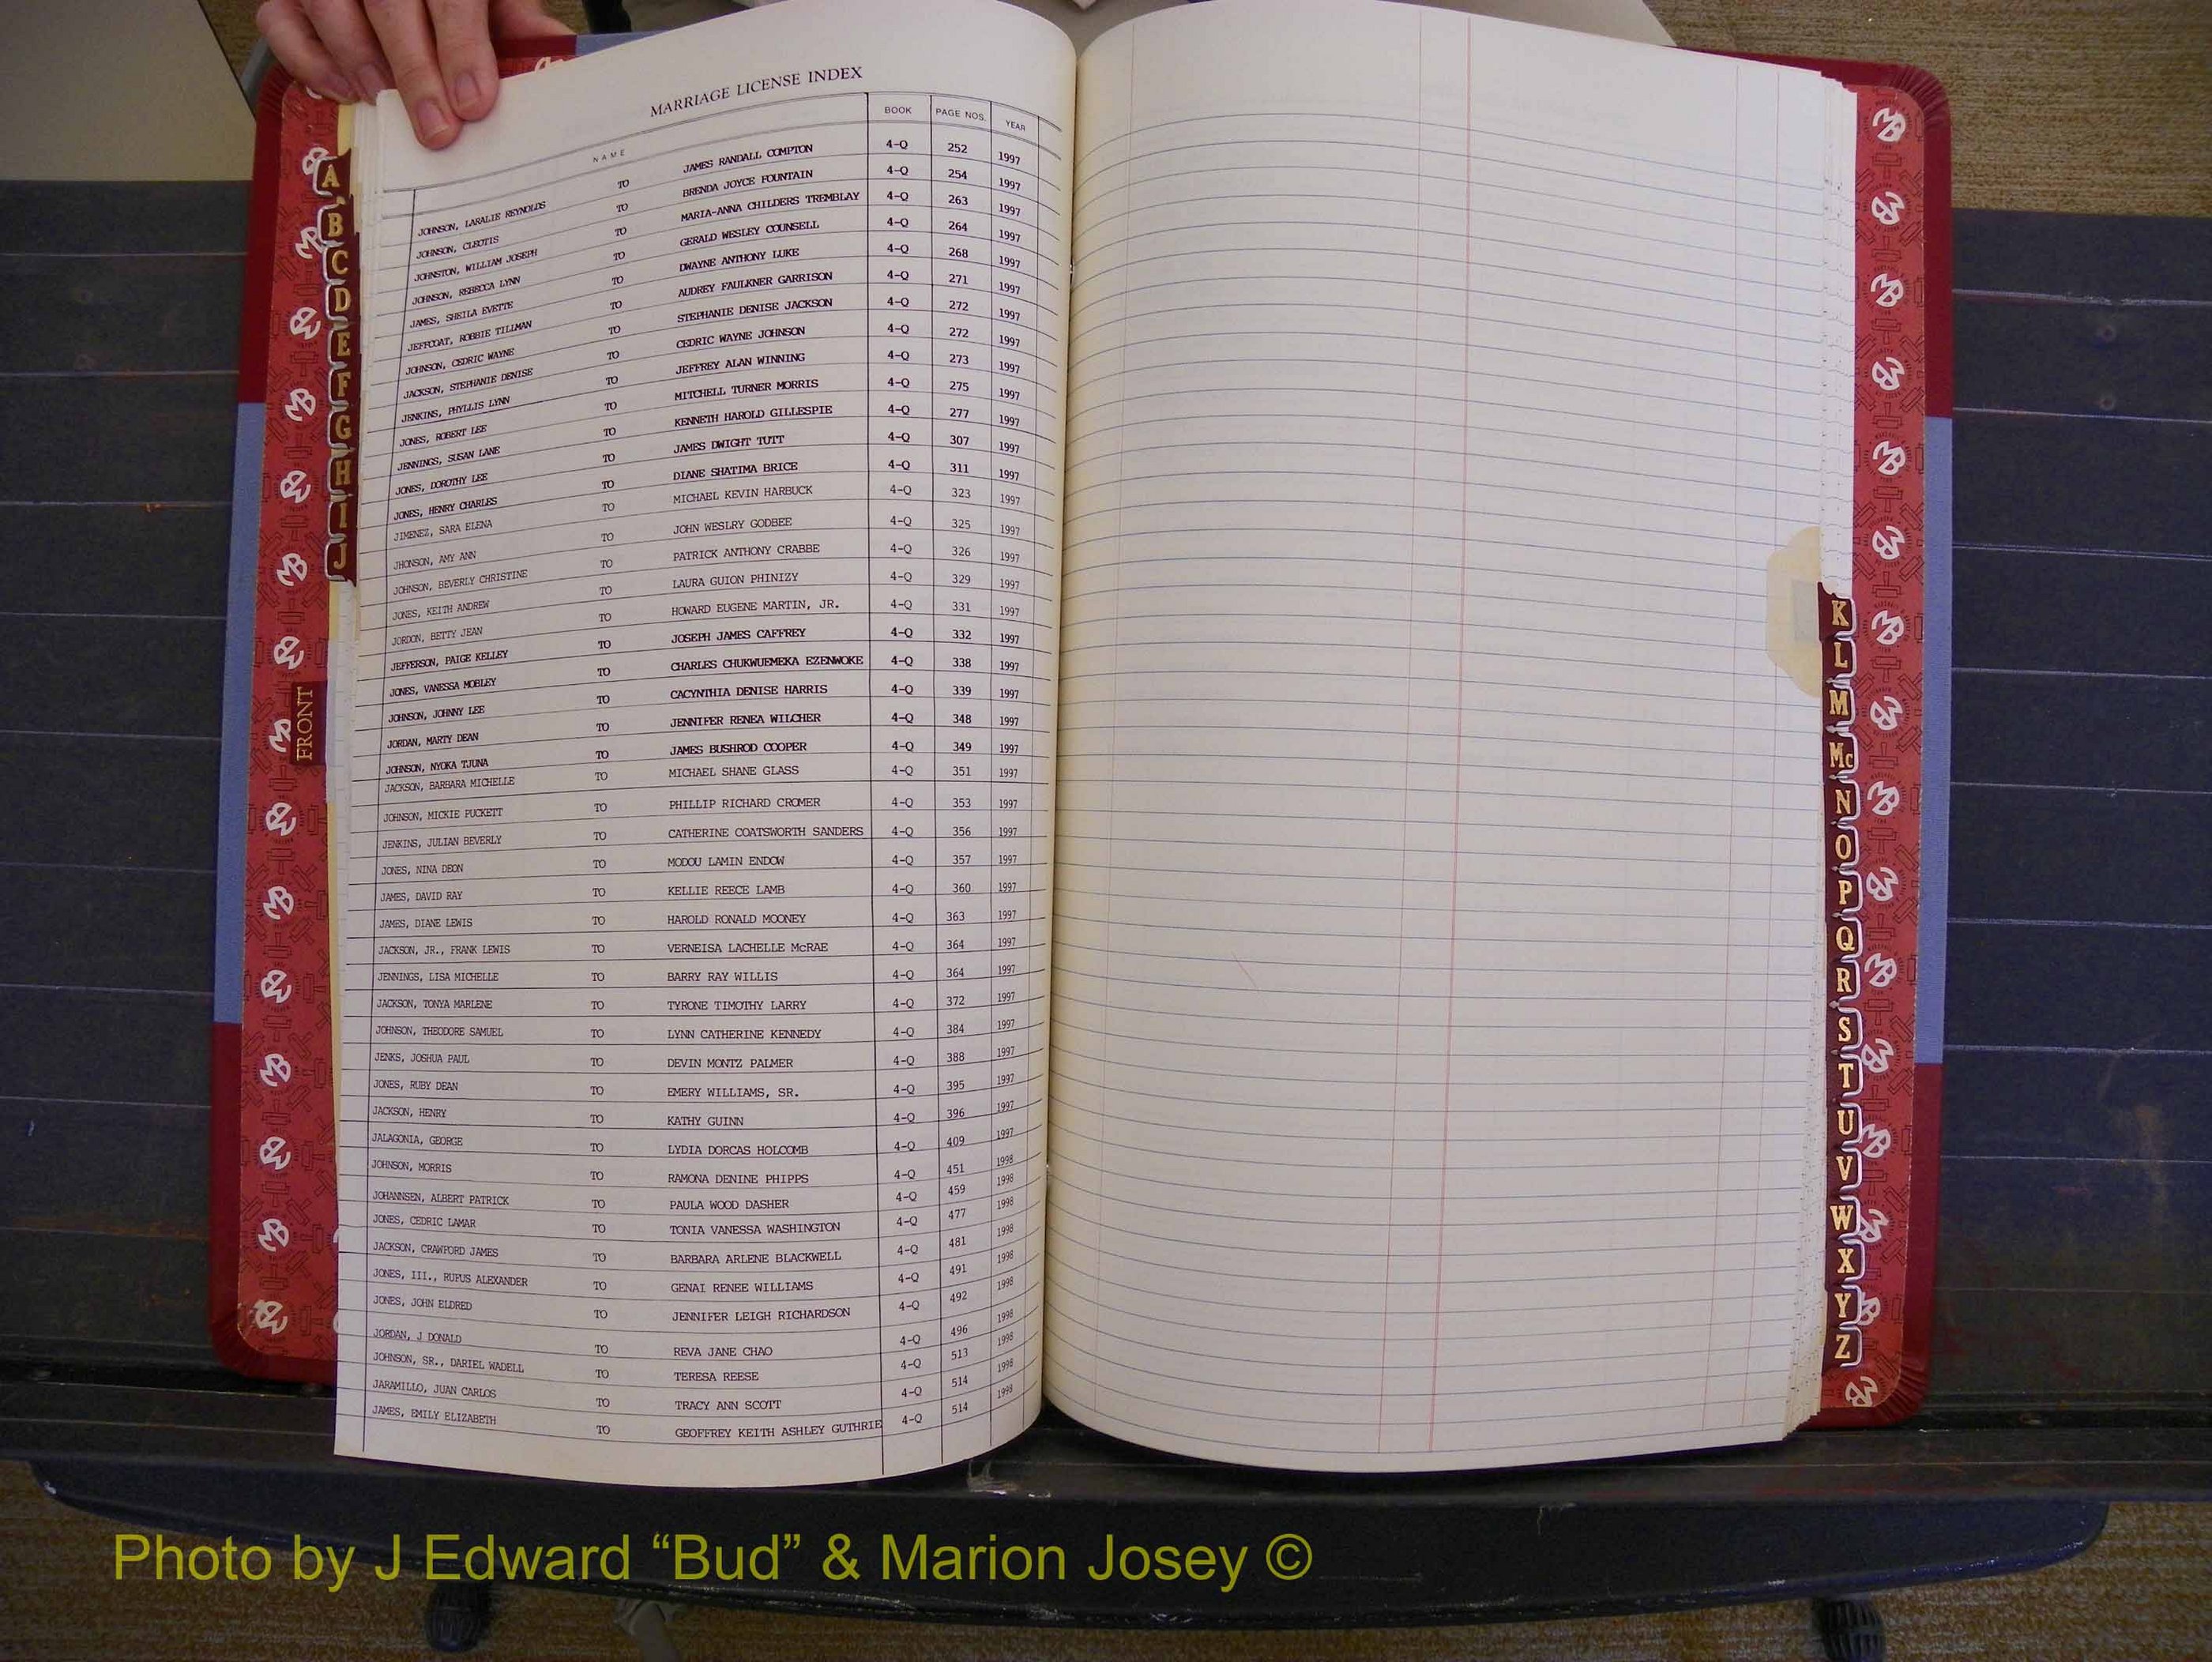 MARRIAGE LICENSE INDEX
NAME BOOK PAGE NOS. YEAR
JOHNSON, LARALIE REYNOLDS TO JAMES RANDALL COMPTON 4-Q 252 1997
JOHNSON, CLEOTIS TO BRENDA JOYCE FOUNTAIN 4-Q 254 1997
JOHNSTON, WILLIAM JOSEPH TO MARIA-ANNA CHILDERS TREMBLAY 4-Q 263 1997
JOHNSON, REBECCA LYNN TO GERALD WESLEY COUNSELL 4-Q 264 1997
JAMES, SHEILA EVETTE TO DWAYNE ANTHONY LUKE 4-Q 268 1997
JEFFCOAT, ROBBIE TILLMAN TO AUDREY FAULKNER GARRISON 4-Q 271 1997
JOHNSON, CEDRIC WAYNE TO STEPHANIE DENISE JACKSON 4-Q 272 1997
JACKSON, STEPHANIE DENISE TO CEDRIC WAYNE JOHNSON 4-Q 272 1997
JENKINS, PHYLLIS LYNN TO JEFFREY ALAN WINNING 4-Q 273 1997
JONES, ROBERT LEE TO MITCHELL TURNER MORRIS 4-Q 275 1997
JENNINGS, SUSAN LANE TO KENNETH HAROLD GILLESPIE 4-Q 277 1997
JONES, DOROTHY LEE TO JAMES DWIGHT TUTT 4-Q 307 1997
JONES, HENRY CHARLES TO DIANE SHATIMA BRICE 4-Q 311 1997
JIMENEZ, SARA ELENA TO MICHAEL KEVIN HARBUCK 4-Q 323 1997
JHONSON, AMY ANN TO JOHN WESLRY GODBEE 4-Q 325 1997
JOHNSON, BEVERLY CHRISTINE TO PATRICK ANTHONY CRABBE 4-Q 326 1997
JONES, KEITH ANDREW TO LAURA GUION PHINIZY 4-Q 329 1997
JORDON, BETTY JEAN TO HOWARD EUGENE MARTIN, JR. 4-Q 331 1997
JEFFERSON, PAIGE KELLEY TO JOSEPH JAMES CAFFREY 4-Q 332 1997
JONES, VANESSA MOBLEY TO CHARLES CHUKWUEMEKA EZENWOKE 4-Q 338 1997
JOHNSON, JOHNNY LEE TO CACYNTHIA DENISE HARRIS 4-Q 339 1997
JORDAN, MARTY DEAN TO JENNIFER RENEA WILCHER 4-Q 348 1997
JOHNSON, NYOKA TJUNA TO JAMES BUSHROD COOPER 4-Q 349 1997
JACKSON, BARBARA MICHELLE TO MICHAEL SHANE GLASS 4-Q 351 1997
JOHNSON, MICKIE PUCKETT TO PHILLIP RICHARD CROMER 4-Q 353 1997
JENKINS, JULIAN BEVERLY TO CATHERINE COATSWORTH SANDERS 4-Q 356 1997
JONES, NINA DEON TO MODOU LAMIN ENDOW 4-Q 357 1997
JAMES, DAVID RAY TO KELLIE REECE LAMB 4-Q 360 1997
JAMES, DIANE LEWIS TO HAROLD RONALD MOONEY 4-Q 363 1997
JACKSON, JR., FRANK LEWIS TO VERNEISA LACHELLE McRAE 4-Q 364 1997
JENNINGS, LISA MICHELLE TO BARRY RAY WILLIS 4-Q 364 1997
JACKSON, TONYA MARLENE TO TYRONE TIMOTHY LARRY 4-Q 372 1997
JOHNSON, THEODORE SAMUEL TO LYNN CATHERINE KENNEDY 4-Q 384 1997
JENKS, JOSHUA PAUL TO DEVIN MONTZ PALMER 4-Q 388 1997
JONES, RUBY DEAN TO EMERY WILLIAMS, SR. 4-Q 395 1997
JACKSON, HENRY TO KATHY GUINN 4-Q 396 1997
JALAGONIA, GEORGE TO LYDIA DORCAS HOLCOMB 4-Q 409 1997
JOHNSON, MORRIS TO RAMONA DENINE PHIPPS 4-Q 451 1998
JOHANNSEN, ALBERT PATRICK TO PAULA WOOD DASHER 4-Q 459 1998
JONES, CEDRIC LAMAR TO TONIA VANESSA WASHINGTON 4-Q 477 1998
JACKSON, CRAWFORD JAMES TO BARBARA ARLENE BLACKWELL 4-Q 481 1998
JONES, III., RUFUS ALEXANDER TO GENAI RENEE WILLIAMS 4-Q 491 1998
JONES, JOHN ELDRED TO JENNIFER LEIGH RICHARDSON 4-Q 492 1998
JORDAN, J DONALD TO REVA JANE CHAO 4-Q 496 1998
JOHNSON, SR., DARIEL WADELL TO TERESA REESE 4-Q 513 1998
JARAMILLO, JUAN CARLOS TO TRACY ANN SCOTT 4-Q 514 1998
JAMES, EMILY ELIZABETH TO GEOFFREY KEITH ASHLEY GUTHRIE 4-Q 514 1998
A
B
C
D
E
F
G
H
I
J
FRONT
K
L
M
Mc
N
O
P
Q
R
S
T
U
V
W
X
Y
Z
Photo by J Edward “Bud” & Marion Josey ©